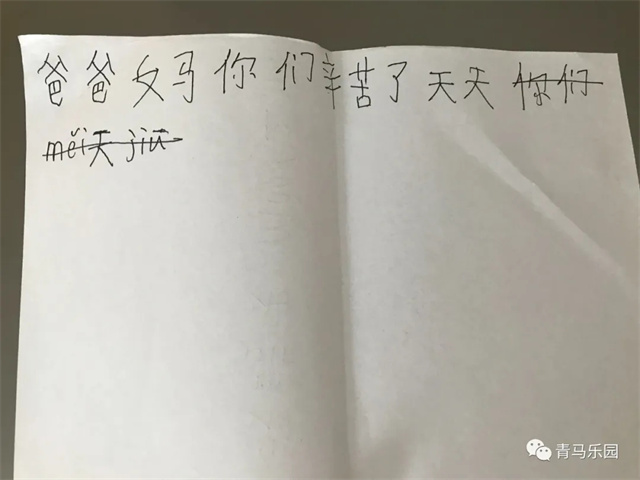 爸爸女马你们辛苦了天天你们
měi天jiù
青马乐园